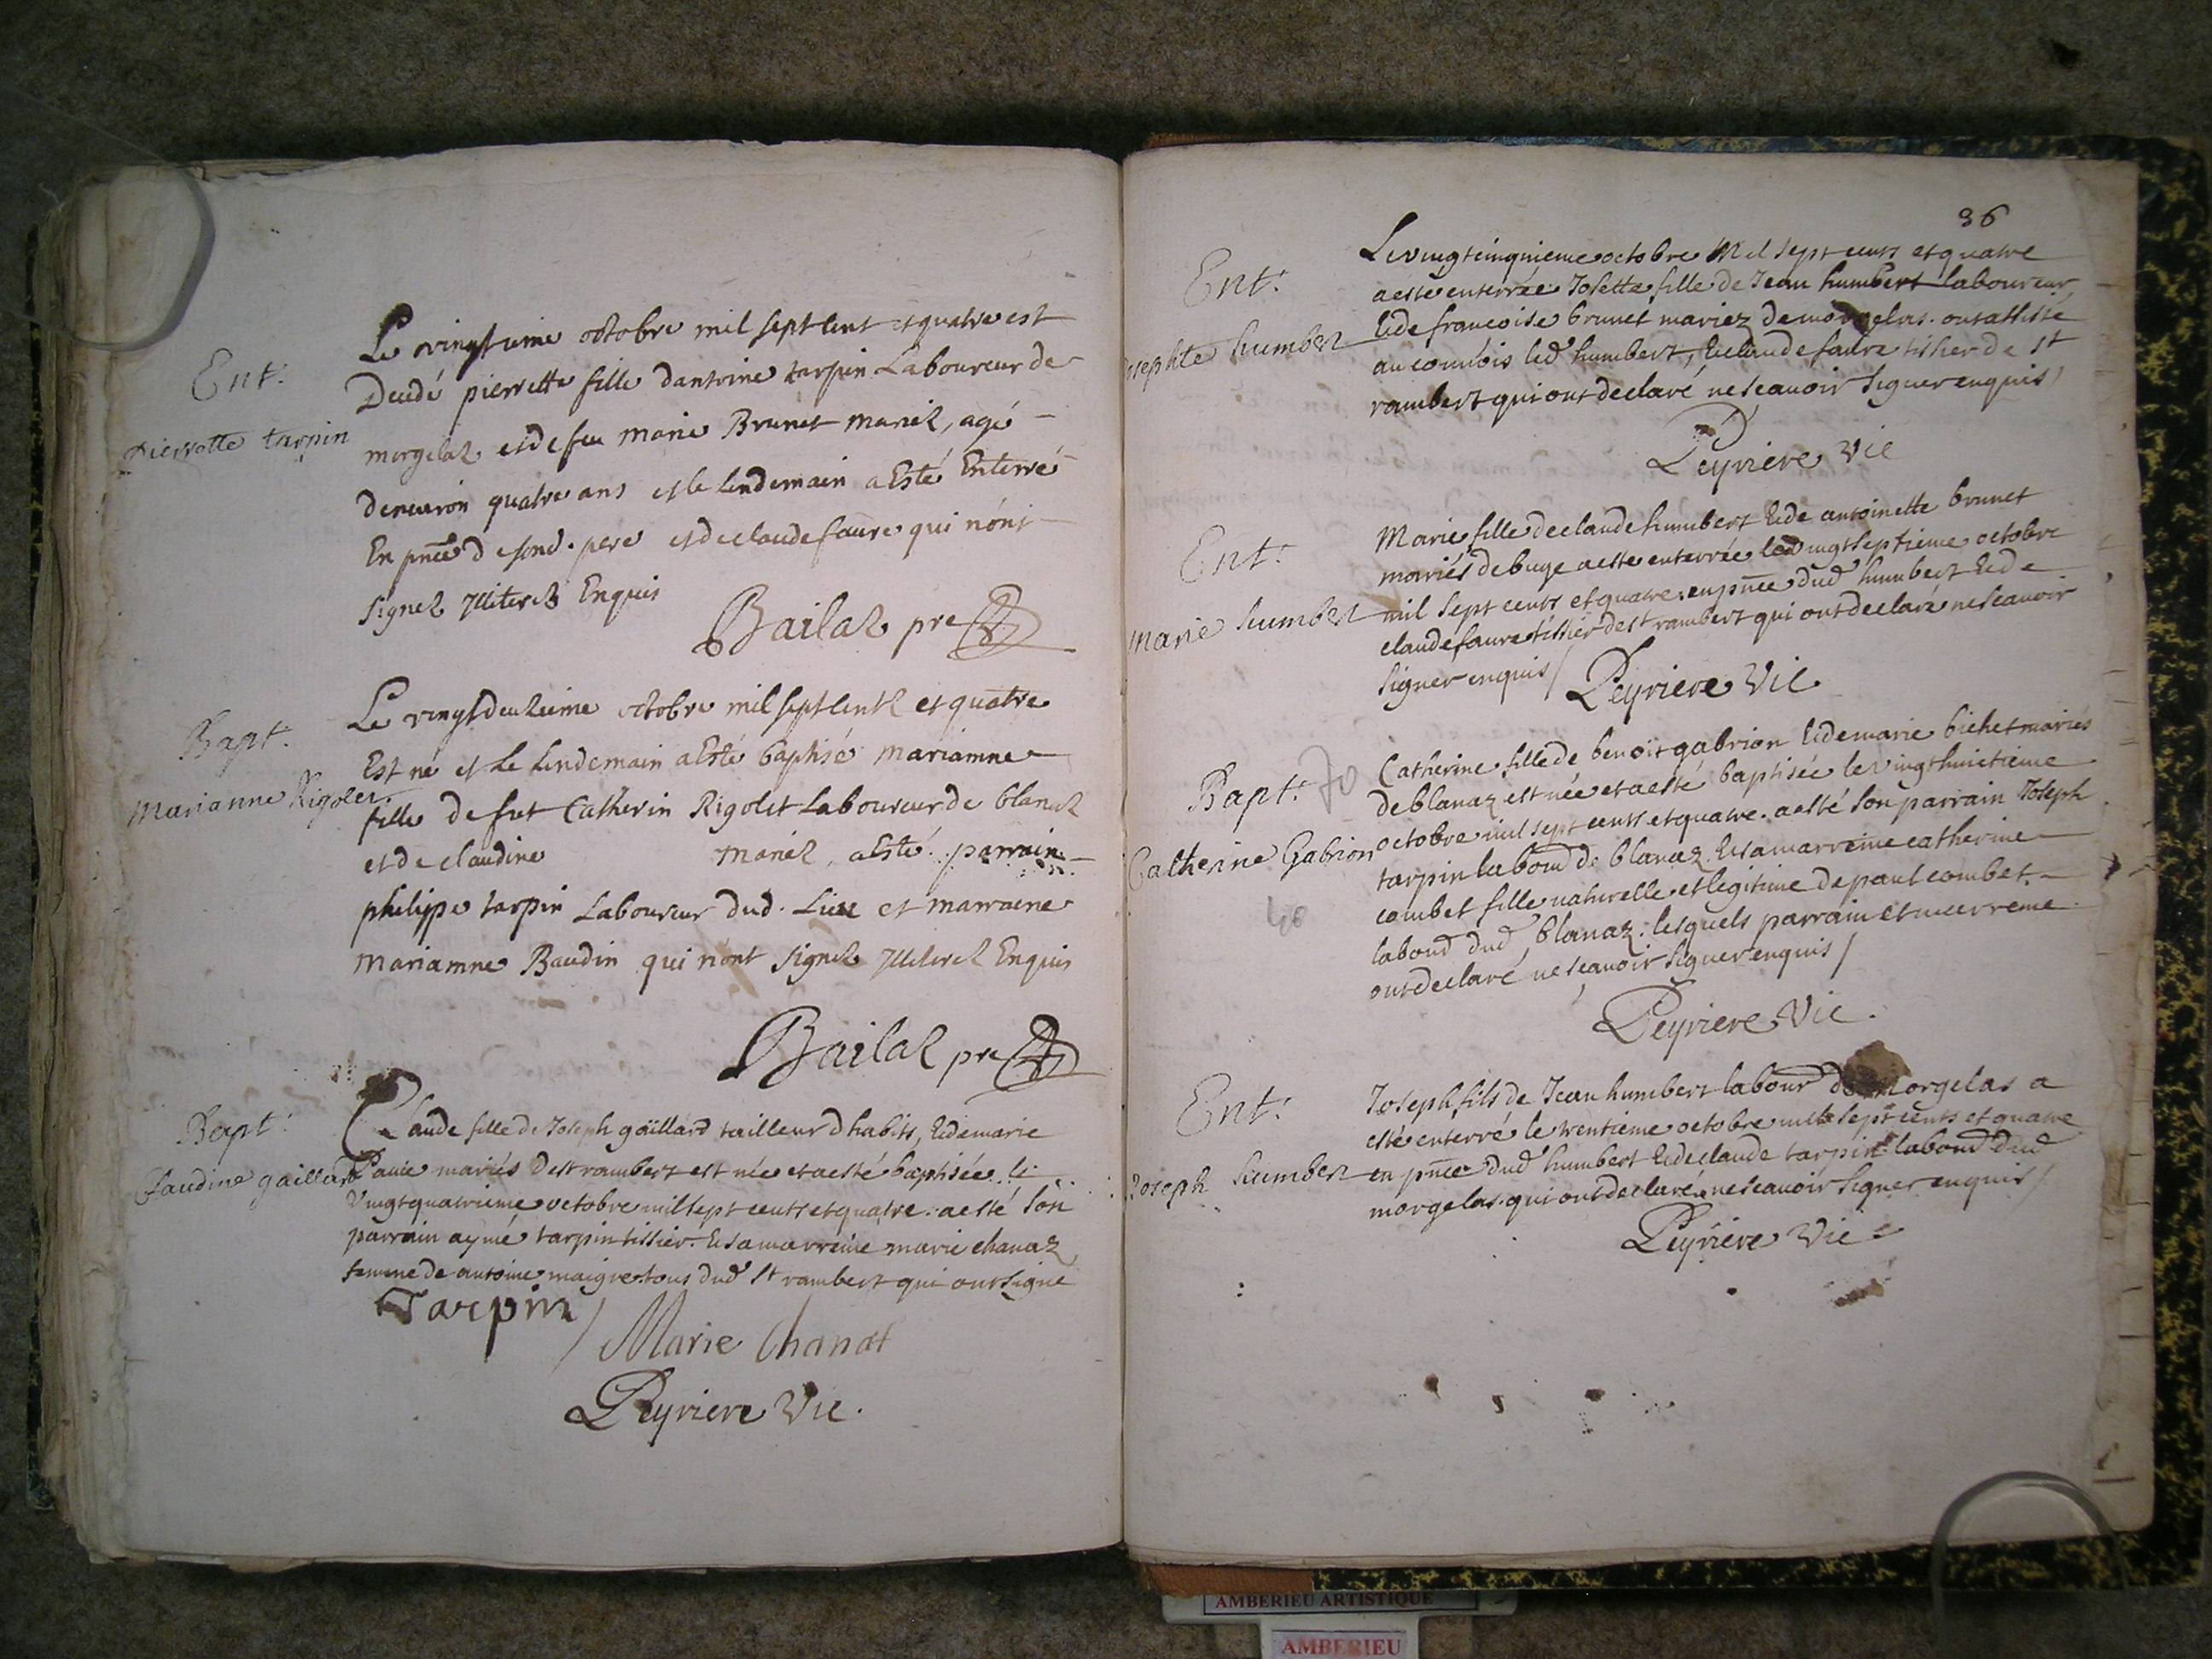 Ent.
Pierrette tarpin
Le vingtieme octobre mil sept cent et quatre est
Decedé pierrette fille dantoine tarpin Laboureur de
morgelaz et de feu marie Brunet mariez, agé
denuiron quatre ans et le lendemain a Esté Enterré
En pnce de sond. pere et de claude faure qui nont
signez Illiterez Enquis
Bailaz pre
Bapt.
Marianne Rigolet
Le vingtdeuzieme octobre mil sept centz et quatre
Est né et Le lendemain a Esté baptisé mariamne
fille de fut Catherin Rigolet Laboureur de blanaz
et de claudine mariez, a Esté parrain
philippe tarpin Laboureur dud. Lieu et marraene
mariamne Baudin qui nont signez Illiterez Enquis
Bailaz pre
Bapt.
Claudine gaillard
Claude fille de Joseph gaillard tailleur dhabits, & de marie
mariés de st rambert est née et a esté baptisée le
vingtquatrieme octobre mil sept cents et quatre. a esté son
parrain aymé tarpin tissier. & sa marreine marie chanaz
femme de antoine maigre tous dud st rambert qui ont signé
Tarpin
Marie Chanat
Peyriere Vic.
36
Ent.
Josephte humbert
Le vingtcinquieme octobre Mil sept cents et quatre
a esté enterrée Josette fille de Jean humbert laboureur
& de francoise brunet mariez de morgelas. ont assisté
au conuois led humbert, & claude faure tissier de st
rambert qui ont declaré ne scauoir signer enquis
Peyriere Vic
Ent.
Marie humbert
Marie fille de claude humbert & de antoinette brunet
mariés de buge a esté enterrée le vingtseptieme octobre
mil sept cents et quatre. en pnce dud humbert & de
claude faure tissier de st rambert qui ont declaré ne scauoir
signer enquis /
Peyriere Vic
Bapt. 70
Catherine Gabrion
40
Catherine fille de benoit gabrion & de marie bichet mariés
de blanaz est née et a esté baptisée le vingthuictieme
octobre mil sept cents et quatre. a esté son parrain Joseph
tarpin laboud de blanaz. & sa marreine catherine
combet fille naturelle et legitime de paul combet
laboud dud blanaz. lesquels parrain et marreine
ont declaré ne scauoir signer enquis /
Peyriere Vic.
Ent.
Joseph humbert
Joseph fils de Jean humbert labour de Morgelas a
esté enterré le trentieme octobre mil sept cents et quatre
en pnce dud humbert & de claude tarpin laboud dud
morgelas. qui ont declaré ne scauoir signer enquis /
Peyriere Vic
AMBERIEU ARTISTIQUE
AMBERIEU